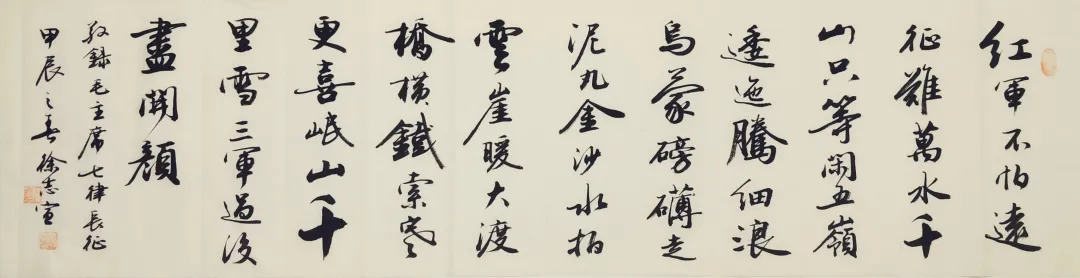 红軍不怕遠
征難萬水千
山只等闲五嶺
逶迤騰细浪
烏蒙磅礴走
泥丸金沙水拍
雲崖暖大渡
橋横鐵索寒
更喜岷山千
里雪三軍過後
盡開顏
敬錄毛主席七律長征
甲辰之春徐志宣